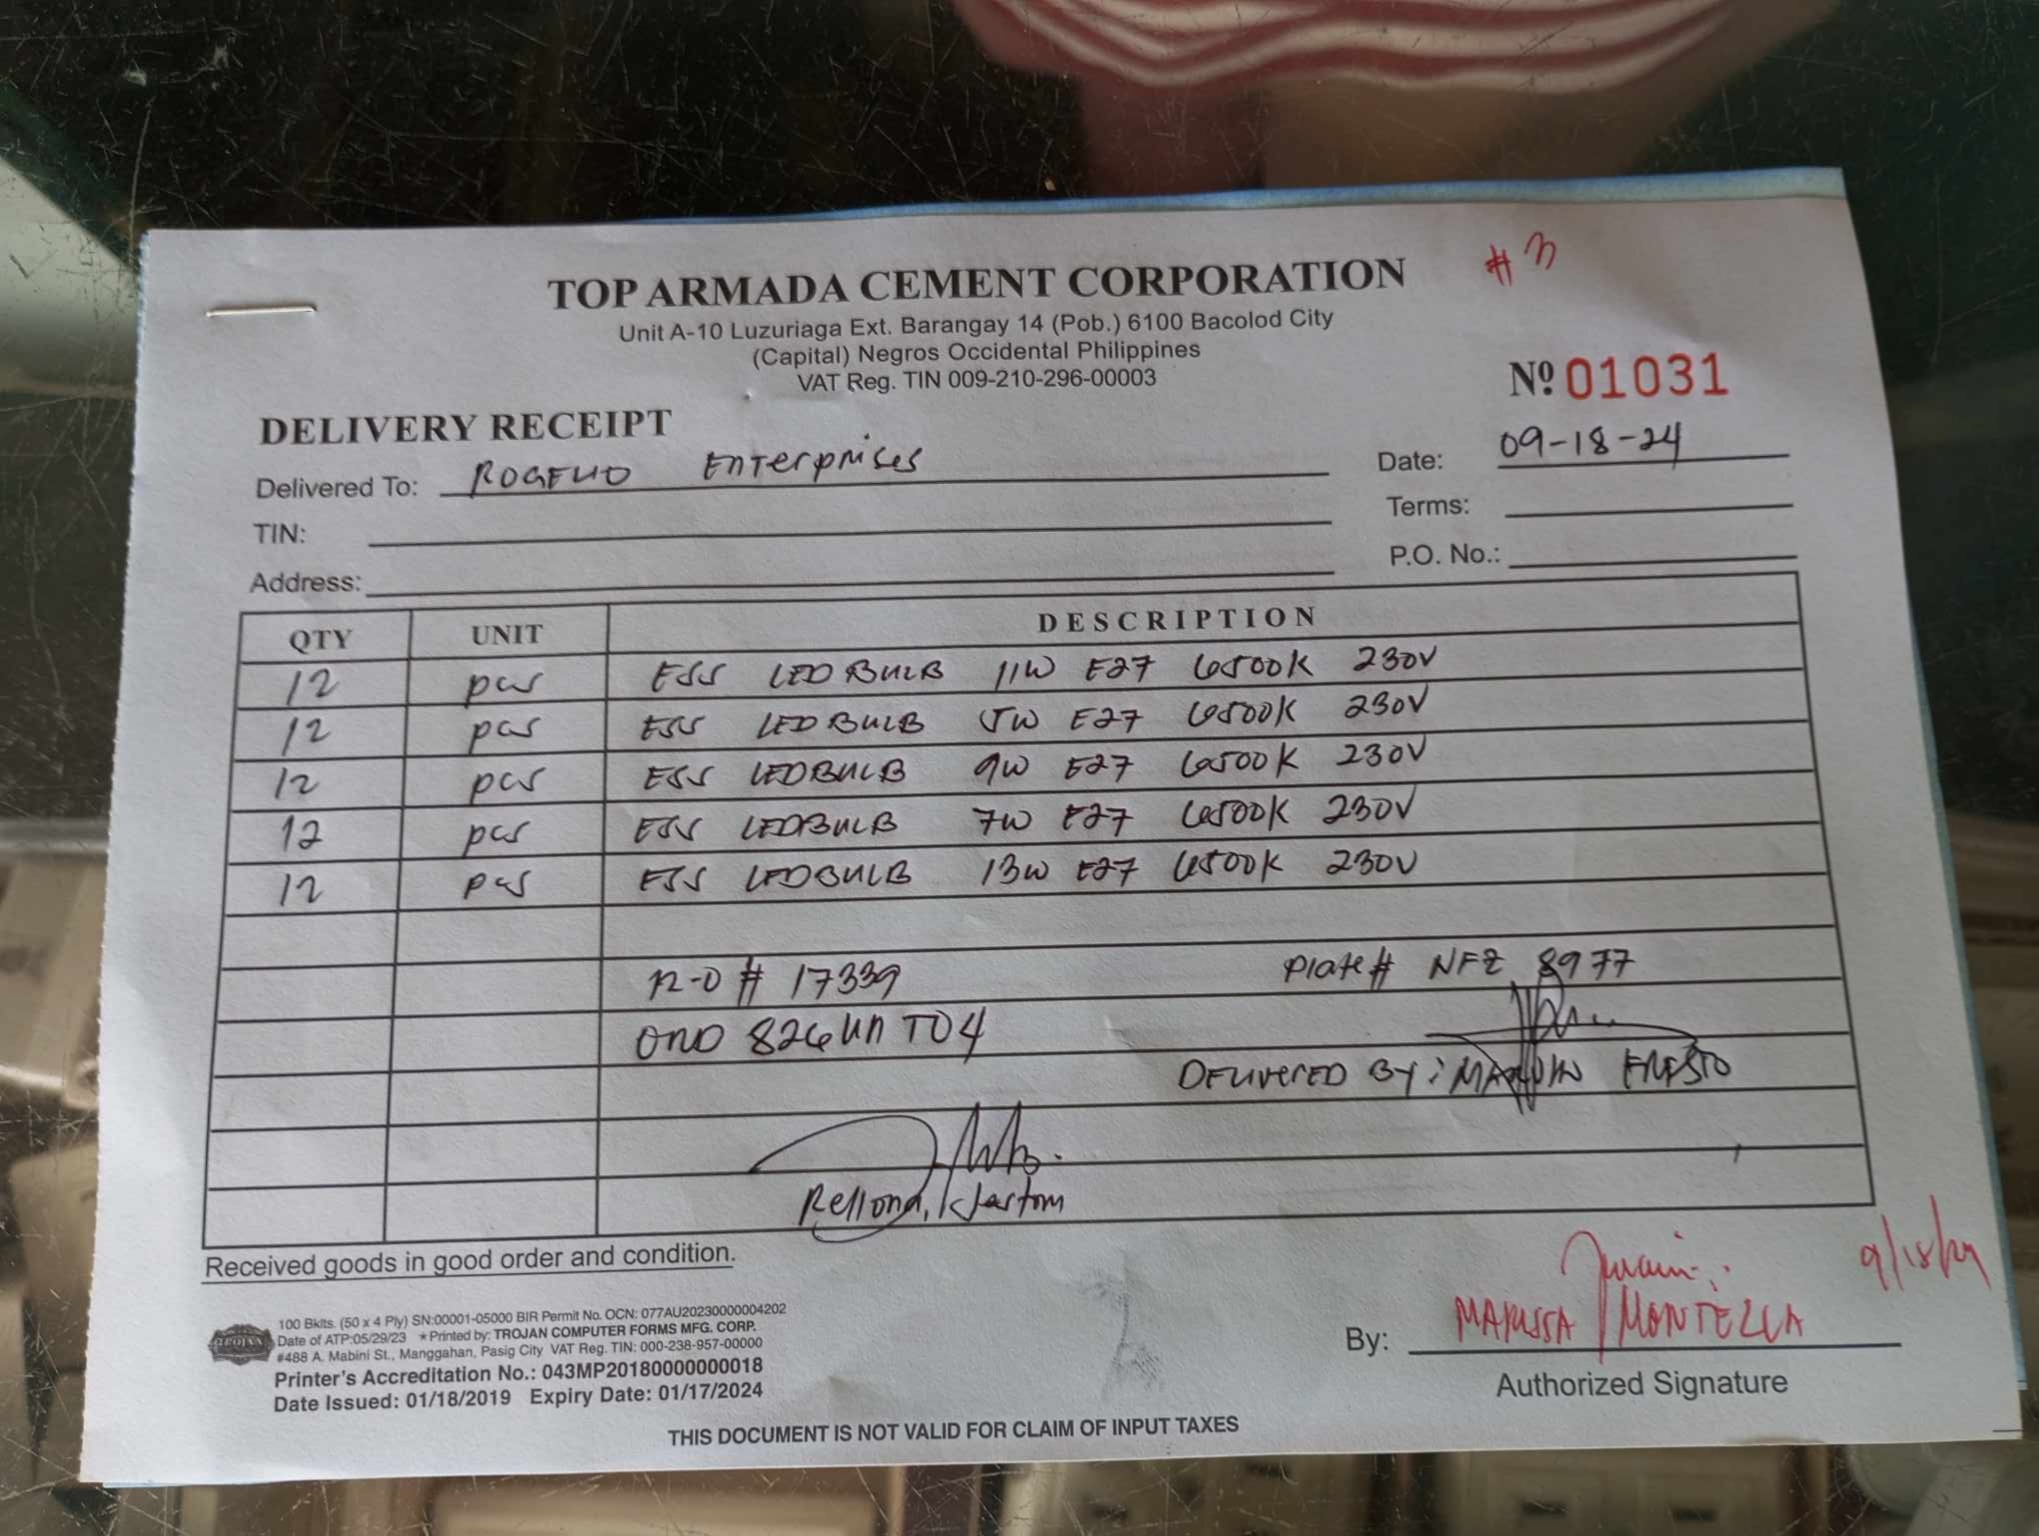 #3
TOP ARMADA CEMENT CORPORATION
Unit A-10 Luzuriaga Ext. Barangay 14 (Pob.) 6100 Bacolod City
(Capital) Negros Occidental Philippines
VAT Reg. TIN 009-210-296-00003
Nº 01031
DELIVERY RECEIPT
Delivered To: ROGELIO Enterprises Date: 09-18-24
TIN: Terms:
Address: P.O. No.:
QTY UNIT DESCRIPTION
12 pcs ESS LED BULB 11W E27 6500K 230V
12 pcs ESS LED BULB 5W E27 6500K 230V
12 pcs ESS LED BULB 9W E27 6500K 230V
12 pcs ESS LED BULB 7W E27 6500K 230V
12 pcs ESS LED BULB 13W E27 6500K 230V
R-O # 17339 Plate # NFZ 8977
DELIVERED BY:
Rellona,
Received goods in good order and condition.
9/18/24
By: MARISSA MONTELLA
Authorized Signature
100 Bklts. (50 x 4 Ply) SN:00001-05000 BIR Permit No. OCN: 077AU20230000004202
Date of ATP:05/29/23 ★Printed by: TROJAN COMPUTER FORMS MFG. CORP.
#488 A. Mabini St., Manggahan, Pasig City VAT Reg. TIN: 000-238-957-00000
Printer's Accreditation No.: 043MP20180000000018
Date Issued: 01/18/2019 Expiry Date: 01/17/2024
THIS DOCUMENT IS NOT VALID FOR CLAIM OF INPUT TAXES